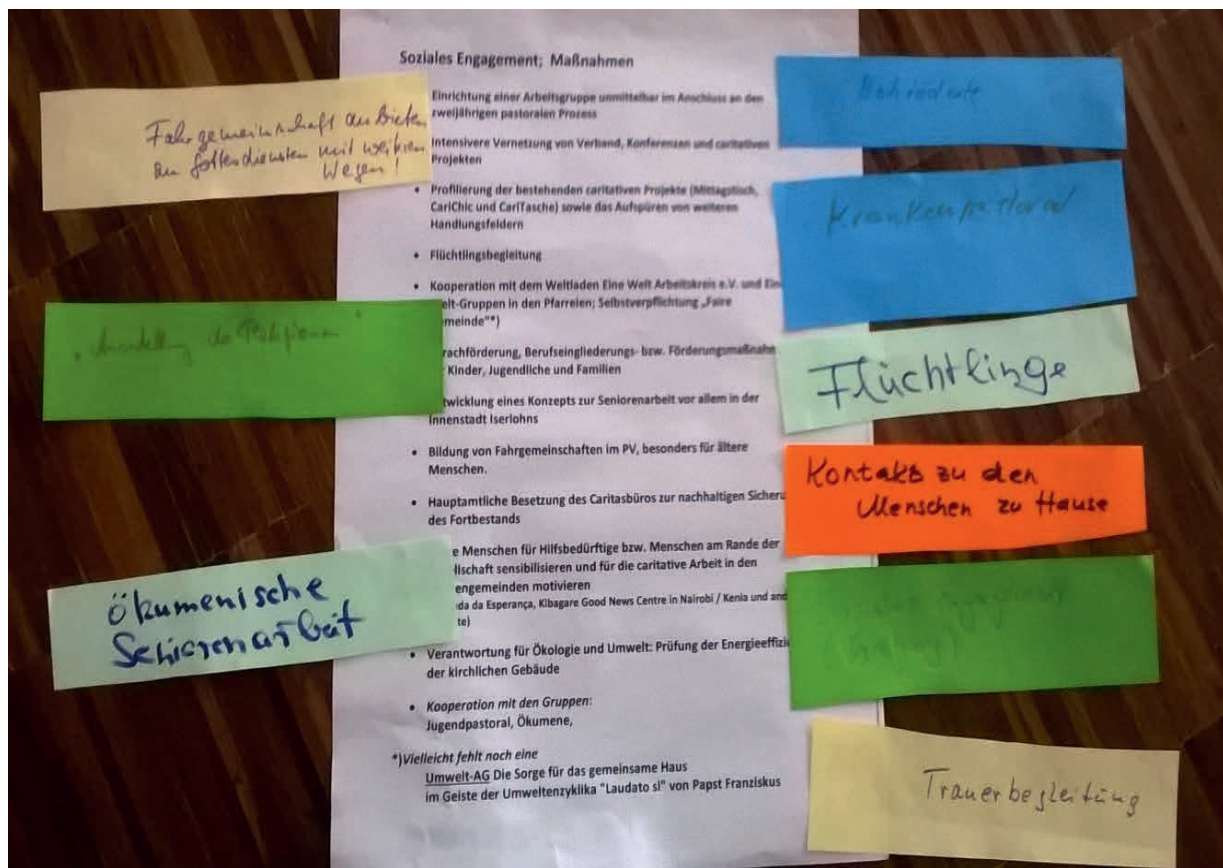 Soziales Engagement; Maßnahmen
Einrichtung einer Arbeitsgruppe unmittelbar im Anschluss an den
zweijährigen pastoralen Prozess
Intensivere Vernetzung von Verband, Konferenzen und caritativen
Projekten
• Profilierung der bestehenden caritativen Projekte (Mittagstisch,
CariChic und CariTasche) sowie das Aufspüren von weiteren
Handlungsfeldern
• Flüchtlingsbegleitung
• Kooperation mit dem Weltladen Eine Welt Arbeitskreis e.V. und Ein
elt-Gruppen in den Pfarreien; Selbstverpflichtung „Faire
meinde"*)
rachförderung, Berufseingliederungs- bzw. Förderungsmaßnahm
Kinder, Jugendliche und Familien
twicklung eines Konzepts zur Seniorenarbeit vor allem in der
Innenstadt Iserlohns
• Bildung von Fahrgemeinschaften im PV, besonders für ältere
Menschen.
• Hauptamtliche Besetzung des Caritasbüros zur nachhaltigen Sicheru
des Fortbestands
e Menschen für Hilfsbedürftige bzw. Menschen am Rande der
llschaft sensibilisieren und für die caritative Arbeit in den
engemeinden motivieren
da da Esperança, Kibagare Good News Centre in Nairobi / Kenia und and
te)
• Verantwortung für Ökologie und Umwelt: Prüfung der Energieeffizi
der kirchlichen Gebäude
• Kooperation mit den Gruppen:
Jugendpastoral, Ökumene,
*)Vielleicht fehlt noch eine
Umwelt-AG Die Sorge für das gemeinsame Haus
im Geiste der Umweltenzyklika "Laudato si" von Papst Franziskus
Fahrgemeinschaft anbieten
zu Gottesdiensten mit weiteren
Wegen!
Ökumenische
Seniorenarbeit
Krankenpastoral
Flüchtlinge
Kontakt zu den
Menschen zu Hause
Trauerbegleitung